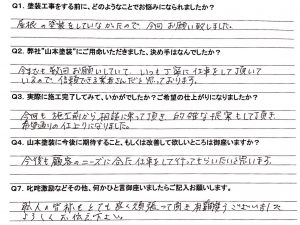 Q1. 塗装工事をする前に、どのようなことでお悩みになられましたか?
屋根の塗装をしていなかったので、今回お願い致しました。
Q2. 弊社"山本塗装"にご用命いただきました、決め手はなんでしたか?
今までも数回お願いしていて、いつも丁寧に仕事をして頂いて
いるので、信頼できる業者さんだと思っております。
Q3. 実際に施工完了してみて、いかがでしたか?ご希望の仕上がりになりましたか?
今回も施工前から相談に乗って頂き、的確な提案もして頂き、
希望通りの仕上りになりました。
Q4. 山本塗装に今後に期待すること、もしくは改善して欲しいところは御座いますか?
今後も顧客のニーズに合った仕事をして行ってもらいたいと思います。
Q7. 叱咤激励などその他、何かひと言御座いましたらご記入お願いします。
職人の皆様もとても良く頑張って頂き、有難うございました
よろしくお伝え下さい。